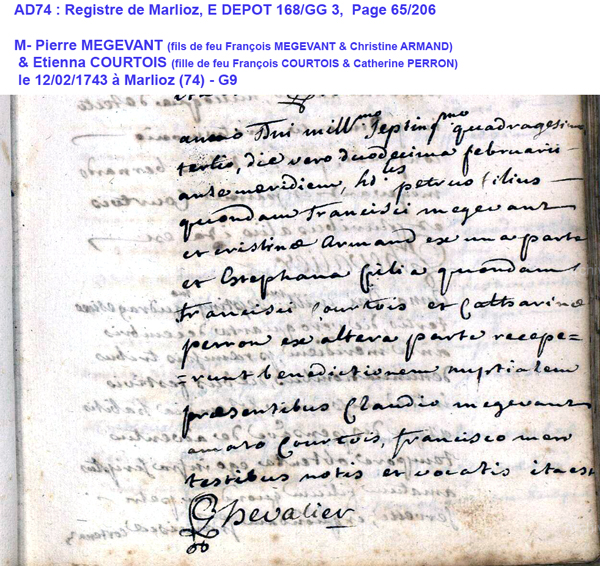 AD74 : Registre de Marlioz, E DEPOT 168/GG 3, Page 65/206
M- Pierre MEGEVANT (fils de feu François MEGEVANT & Christine ARMAND)
& Etienna COURTOIS (fille de feu François COURTOIS & Catherine PERRON)
le 12/02/1743 à Marlioz (74) - G9
anno Dni mill^mo septing^mo quadragesimo
tertio, die vero duodecima februarii
ante meridiem, petrus filius
quondam francisci megevant
et cristinæ Armand ex una parte
et Stephana filia quondam
francisci Courtois et Catharinæ
perron ex altera parte recepe=
=runt benedictionem nuptialem
præsentibus Claudio megevant
amato Courtois, francisco
testibus notis et vocatis ita est
Chevalier